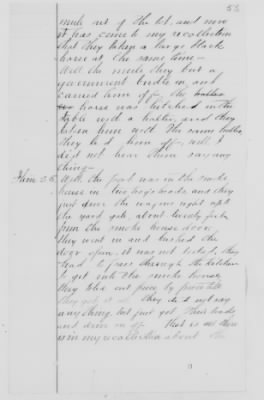 53
mule out of the lot, and now
it has come to my recollection
that they taken a large black
horse at the same time—
Well the mule they put a
government bridle on and
carried him off, the halter
horse was hitched in the
stable with a halter, and they
taken him with the same halter,
they led them off, well I
did not hear them say any
thing—
Item 25. Well, the meat was in the smoke
house in two hogsheads, and they
just drove the wagons right up to
the yard gate, about twenty feet
from the smoke house door,
they went in and bashed the
door open, it was not locked, they
had to pass through the kitchen
to get into the smoke house,
they toted out piece by piece till
they got it all they did not say
any thing but just got their loads,
and drove on off that is all there
is in my recollection about the